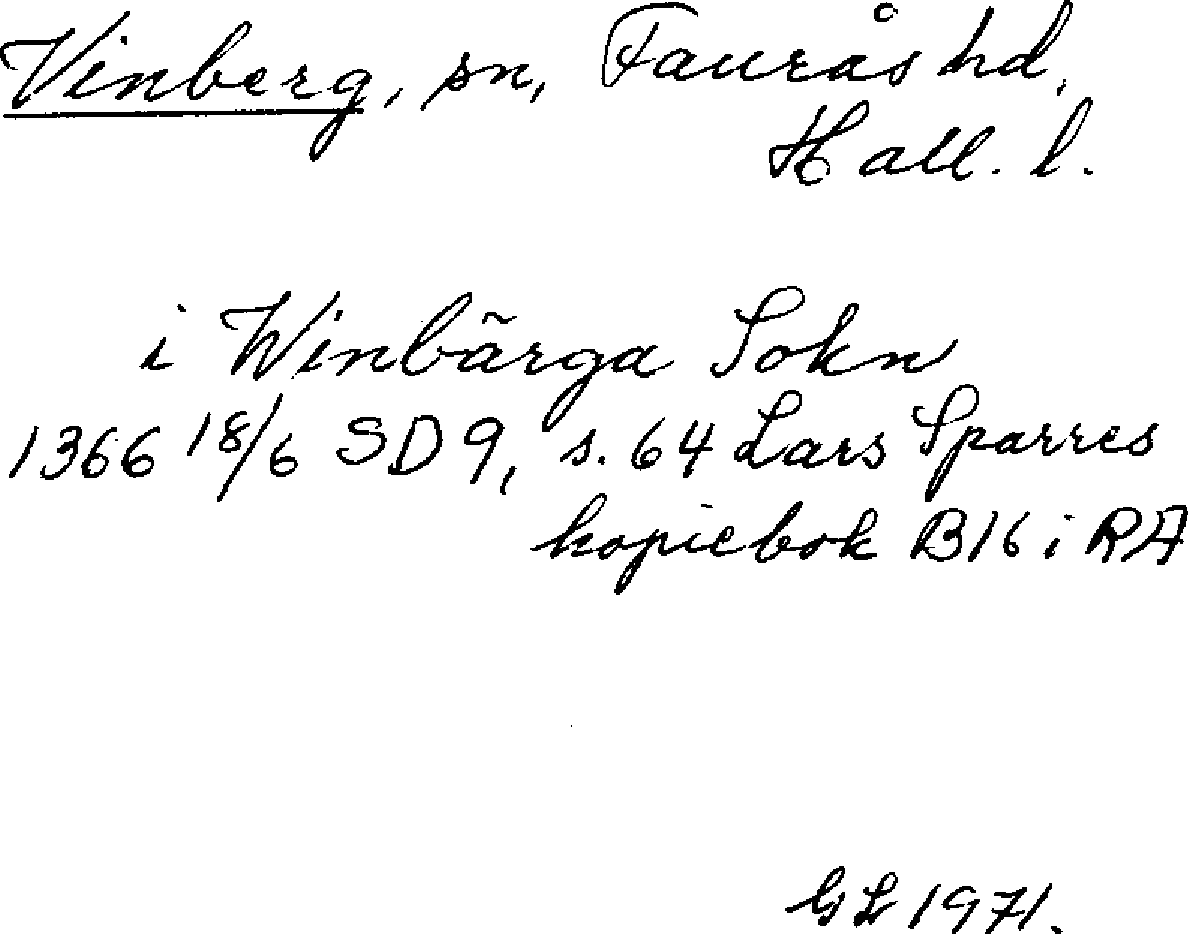 Vinberg, sn, Fauråshd,
Hall. l.
i Winbärga Sokn
1366 18/6 SD 9, s. 64 Lars Sparres
kopiebok B16 i RA
GL 1971.